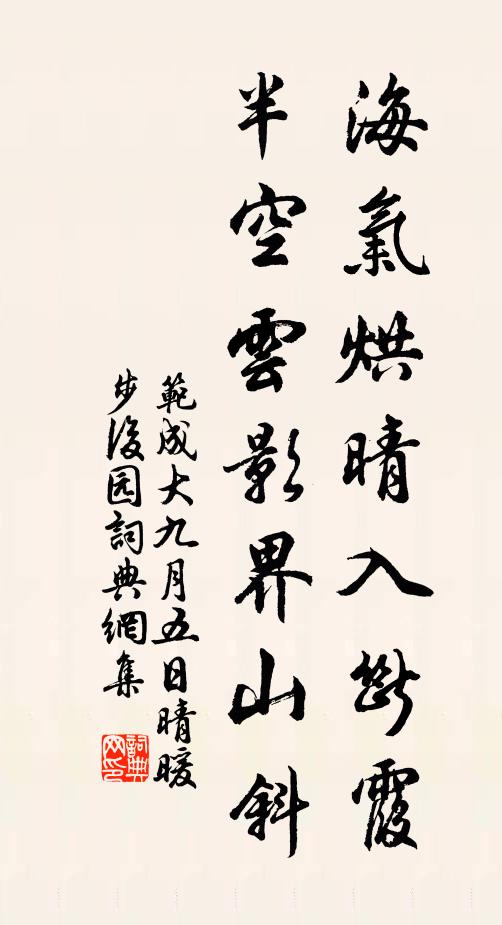 海氣烘晴入斷霞
半空雲影界山斜
範成大九月五日晴暖
步後园詞典網集
詞典网印